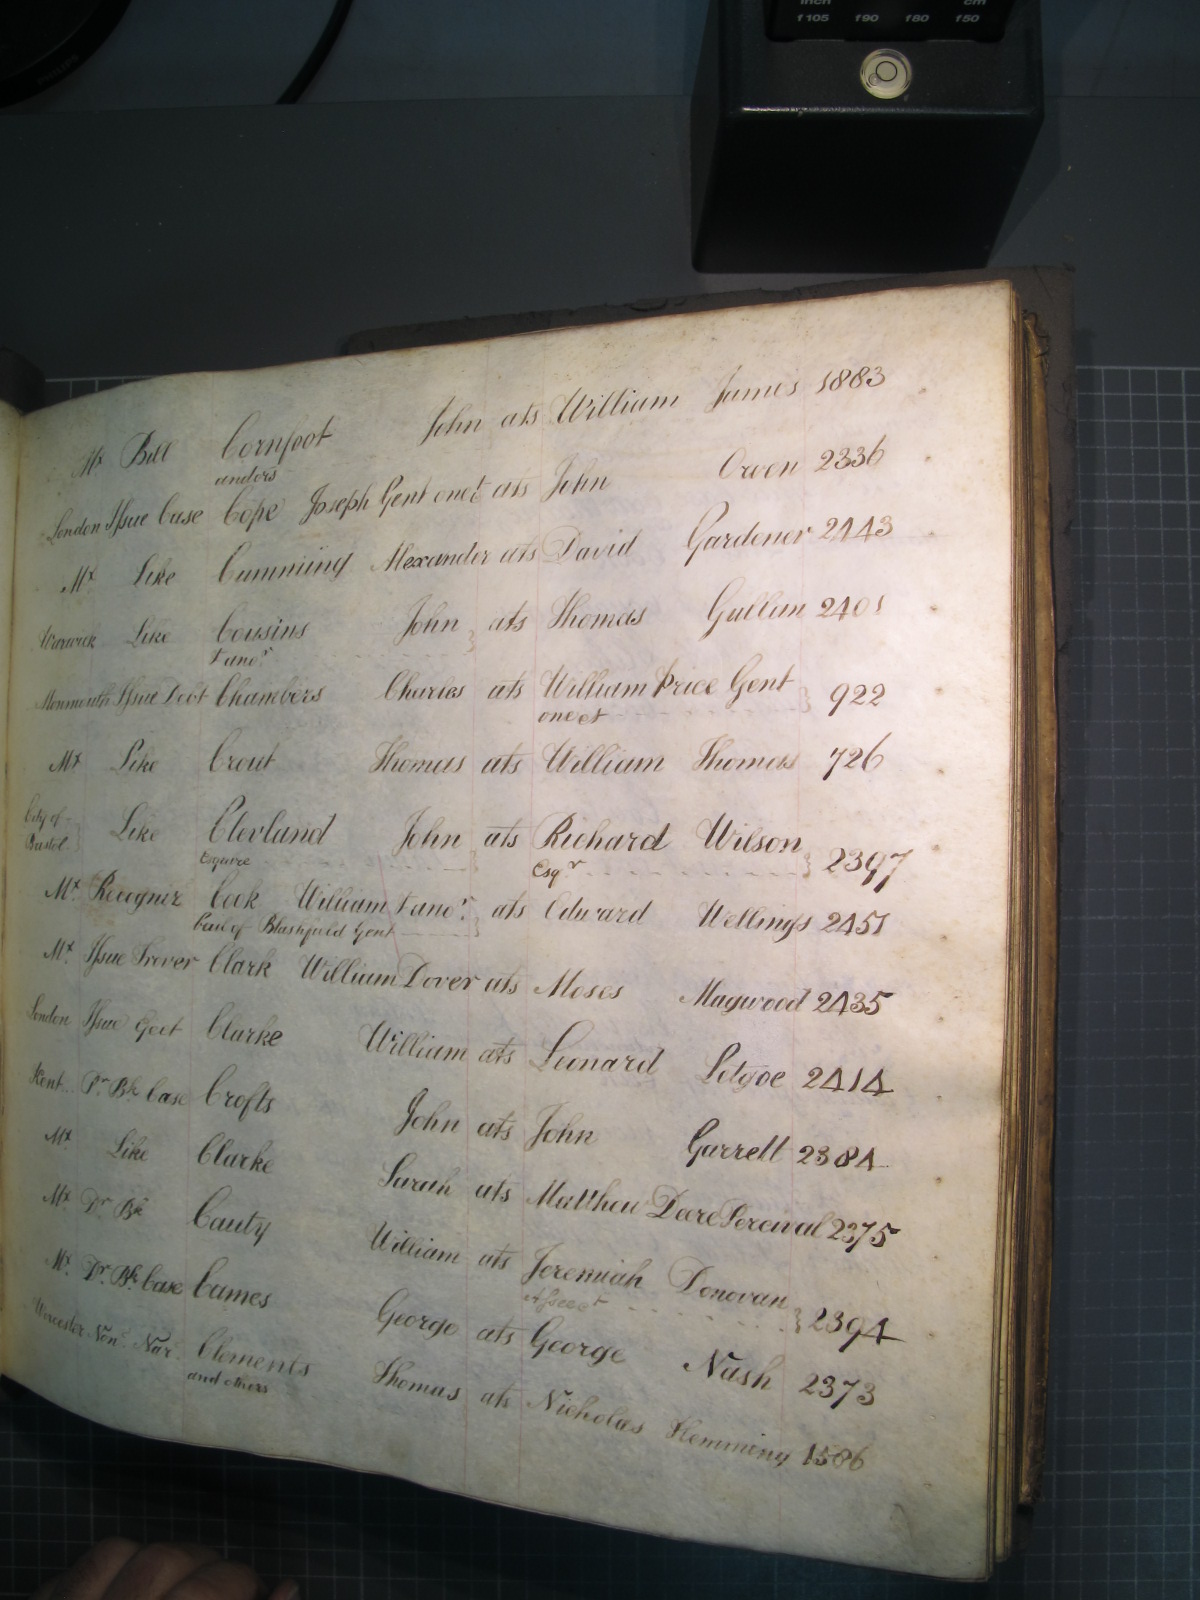 inch cm
f105 f90 f80 f50
Mx Bill Cornfoot John ats William James 1883
andors
London Issue Case Cope Joseph Gent onet ats John Owen 2336
Mx Like Cumming Alexander ats David Gardener 2443
Warwick Like Cousins John ats Thomas Gullun 2401
& anor
Monmouth Issue Debt Chambers Charles ats William Price Gent 922
one et
Mx Like Crout Thomas ats William Thomas 726
City of
Bristol Like Clevland John ats Richard Wilson 2397
Esquire Esqr
Mx Recognize Cook William & anor ats Edward Wellings 2451
Bail of Blashfield Gent
Mx Issue Trover Clark William Dover ats Moses Maywood 2435
London Issue Clarke William ats Leonard 2414
Kent Pr Bk Case Crofts John ats John Garrell 2384
Mx Like Clarke Sarah ats Matthew Deere Percival 2375
Mx Dr Bk Cauty William ats Jeremiah Donovan 2394
Mx Dr Bk Case Cames George ats George Nash 2373
Worcester Clements Thomas ats Nicholas Hemming 1586
and others